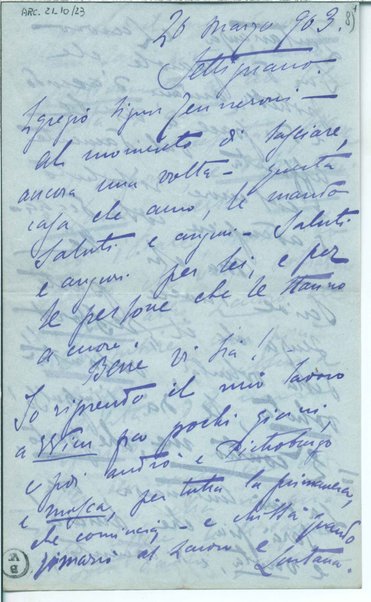 ARC. 21.10/23
8)
26 marzo 903.
Settignano.
Egregio Signor Jenneroni —
Al momento di lasciare,
ancora una volta — questa
casa che amo, le mando
saluti e auguri — Saluti
e auguri per lei, e per
le persone che le stanno
a cuore.
Bene vi sia! —
Io riprendo il mio lavoro
a fra pochi giorni,
e poi andrò a Pietroburgo
e Mosca, per tutta la primavera,
che comincia — e chissà quando
al lavoro e lontana.